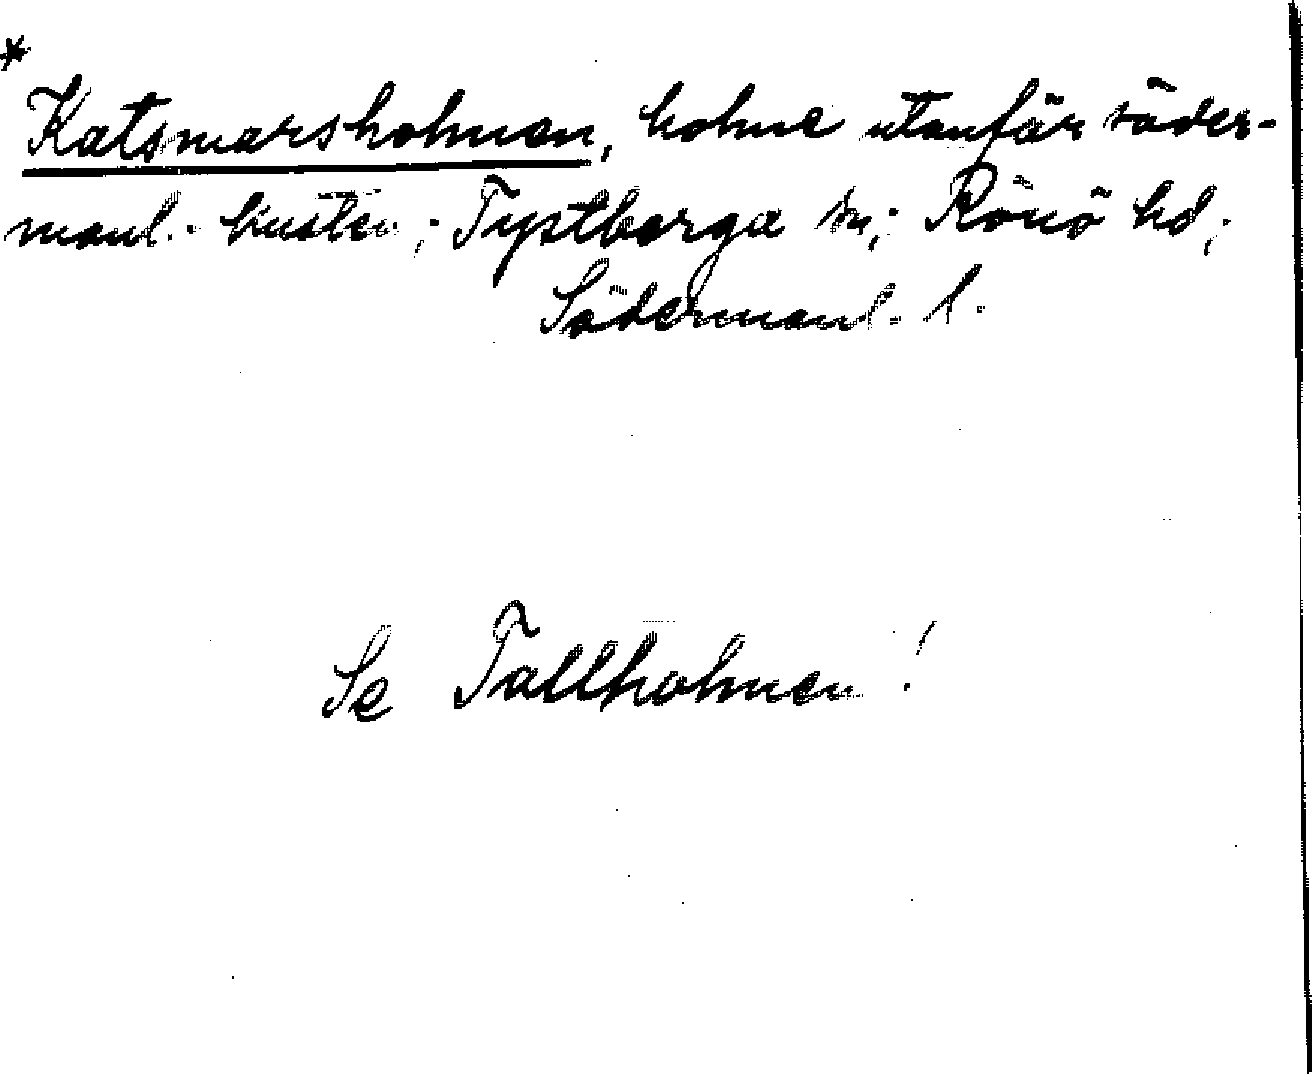 *
Katsmarsholmen, holme utanför söder-
manl. kusten; Tystberga sn; Rönö hd;
Södermanl. l.
Se Tallholmen!